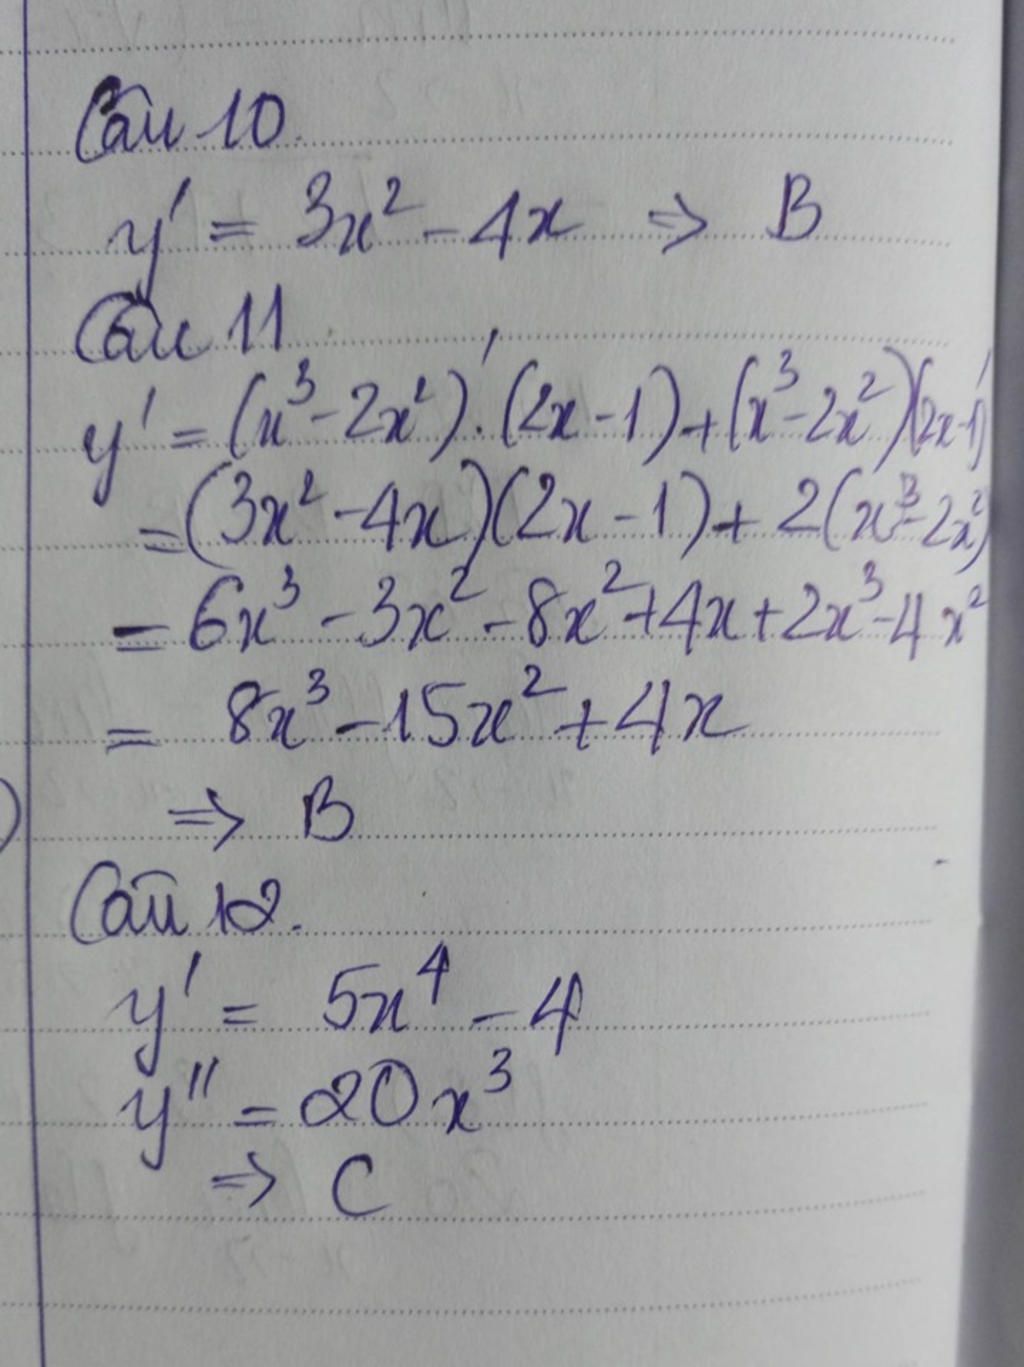 Câu 10.
y' = 3x² - 4x ⇒ B
Câu 11
y' = (x³ - 2x²)'.(2x - 1) + (x³ - 2x²)(2x - 1)'
= (3x² - 4x)(2x - 1) + 2(x³ - 2x²)
= 6x³ - 3x² - 8x² + 4x + 2x³ - 4x²
= 8x³ - 15x² + 4x
⇒ B
Câu 12.
y' = 5x⁴ - 4
y'' = 20x³
⇒ C